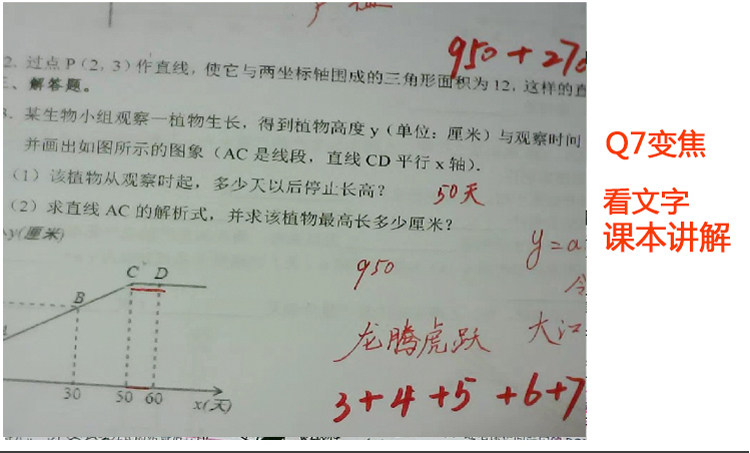 950+270
2. 过点P(2, 3)作直线，使它与两坐标轴围成的三角形面积为12，这样的直
、解答题。
. 某生物小组观察一植物生长，得到植物高度y（单位：厘米）与观察时间
并画出如图所示的图象（AC是线段，直线CD平行x轴).
(1) 该植物从观察时起，多少天以后停止长高？ 50天
(2) 求直线AC的解析式，并求该植物最高长多少厘米？
y(厘米)
y=a
950
C D
B
龙腾虎跃 大江
30 50 60 x(天)
3+4+5+6+7
Q7变焦
看文字
课本讲解